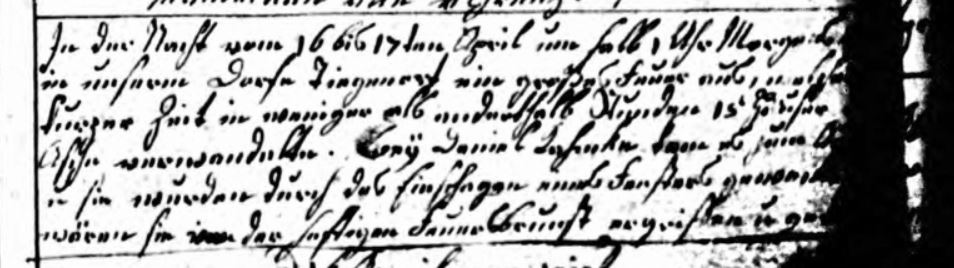 In der Nacht vom 16 bis 17ten April um halb 1 Uhr Morgens
in unserm Dorfe Tiegenort ein großes Feuer aus, welches
kurzer Zeit in weniger als anderthalb Stunden 15 Häuser
Asche verwandelte. Bey Daniel kam es zum
u sie wurden durch das Einschlagen eines Fensters geweckt
wären sie von der heftigen Feuersbrunst ergriffen u